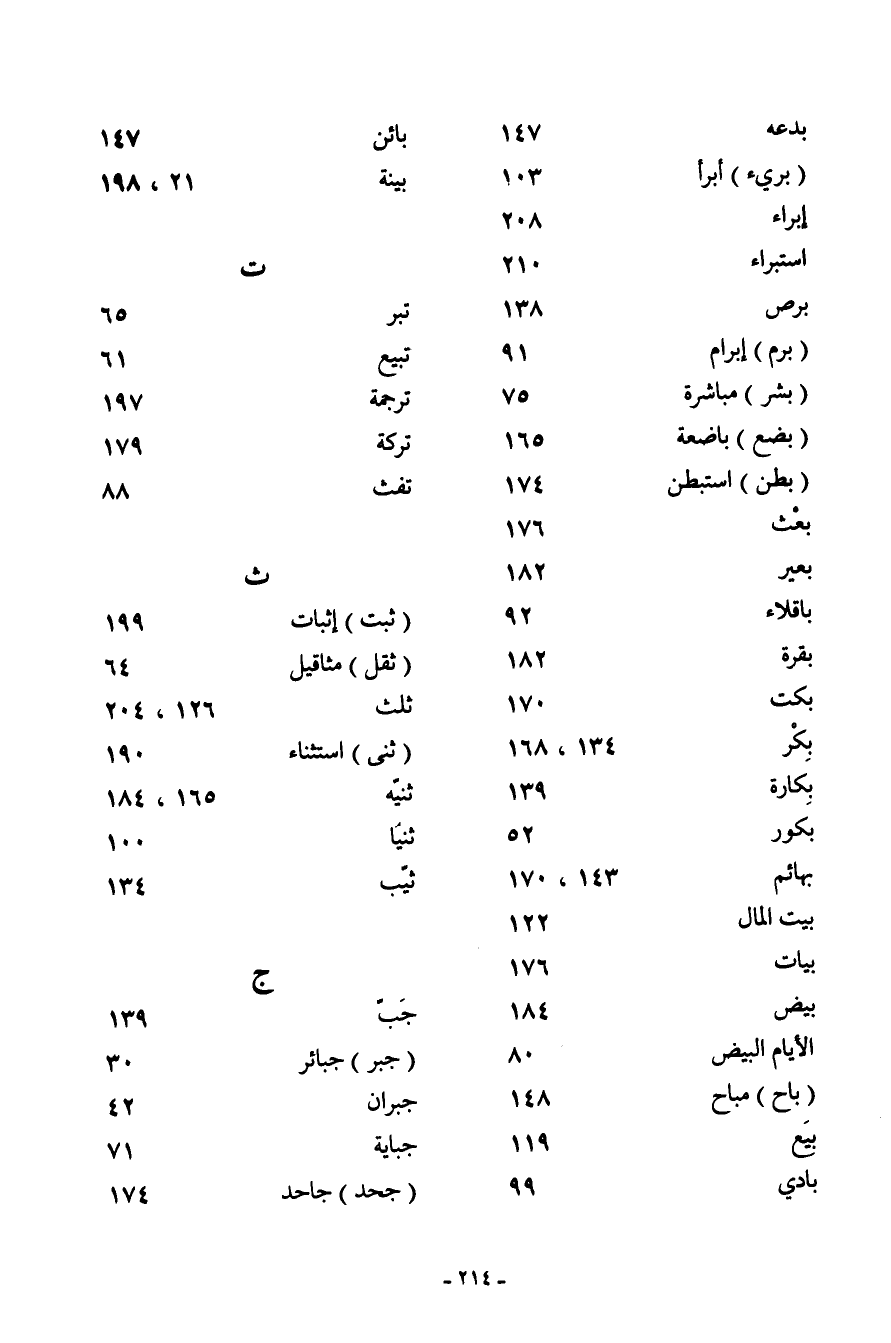 بدعه ١٤٧
( بريء ) أبرأ ١٠٣
إبراء ٢٠٨
استبراء ٢١٠
برص ١٣٨
( برم ) إبرام ٩١
( بشر ) مباشرة ٧٥
( بضع ) باضعة ١٦٥
( بطن ) استبطن ١٧٤
بعْث ١٧٦
بعير ١٨٢
باقلاء ٩٢
بقرة ١٨٢
بكت ١٧٠
بِكْر ١٣٤ ، ١٦٨
بِكارة ١٣٩
بكور ٥٢
بهائم ١٤٣ ، ١٧٠
بيت المال ١٢٢
بيات ١٧٦
بيض ١٨٤
الأيام البيض ٨٠
( باح ) مباح ١٤٨
بِيَع ١١٩
بادي ٩٩
بائن ١٤٧
بينة ٢١ ، ١٩٨
ت
تبر ٦٥
تبيع ٦١
ترجمة ١٩٧
تركة ١٧٩
تفث ٨٨
ث
( ثبت ) إثبات ١٩٩
( ثقل ) مثاقيل ٦٤
ثلث ١٢٦ ، ٢٠٤
( ثنى ) استثناء ١٩٠
ثنيّه ١٦٥ ، ١٨٤
ثنيًا ١٠٠
ثيّب ١٣٤
ج
جَبّ ١٣٩
( جبر ) جبائر ٣٠
جبران ٤٢
جباية ٧١
( جحد ) جاحد ١٧٤
- ٢١٤ -